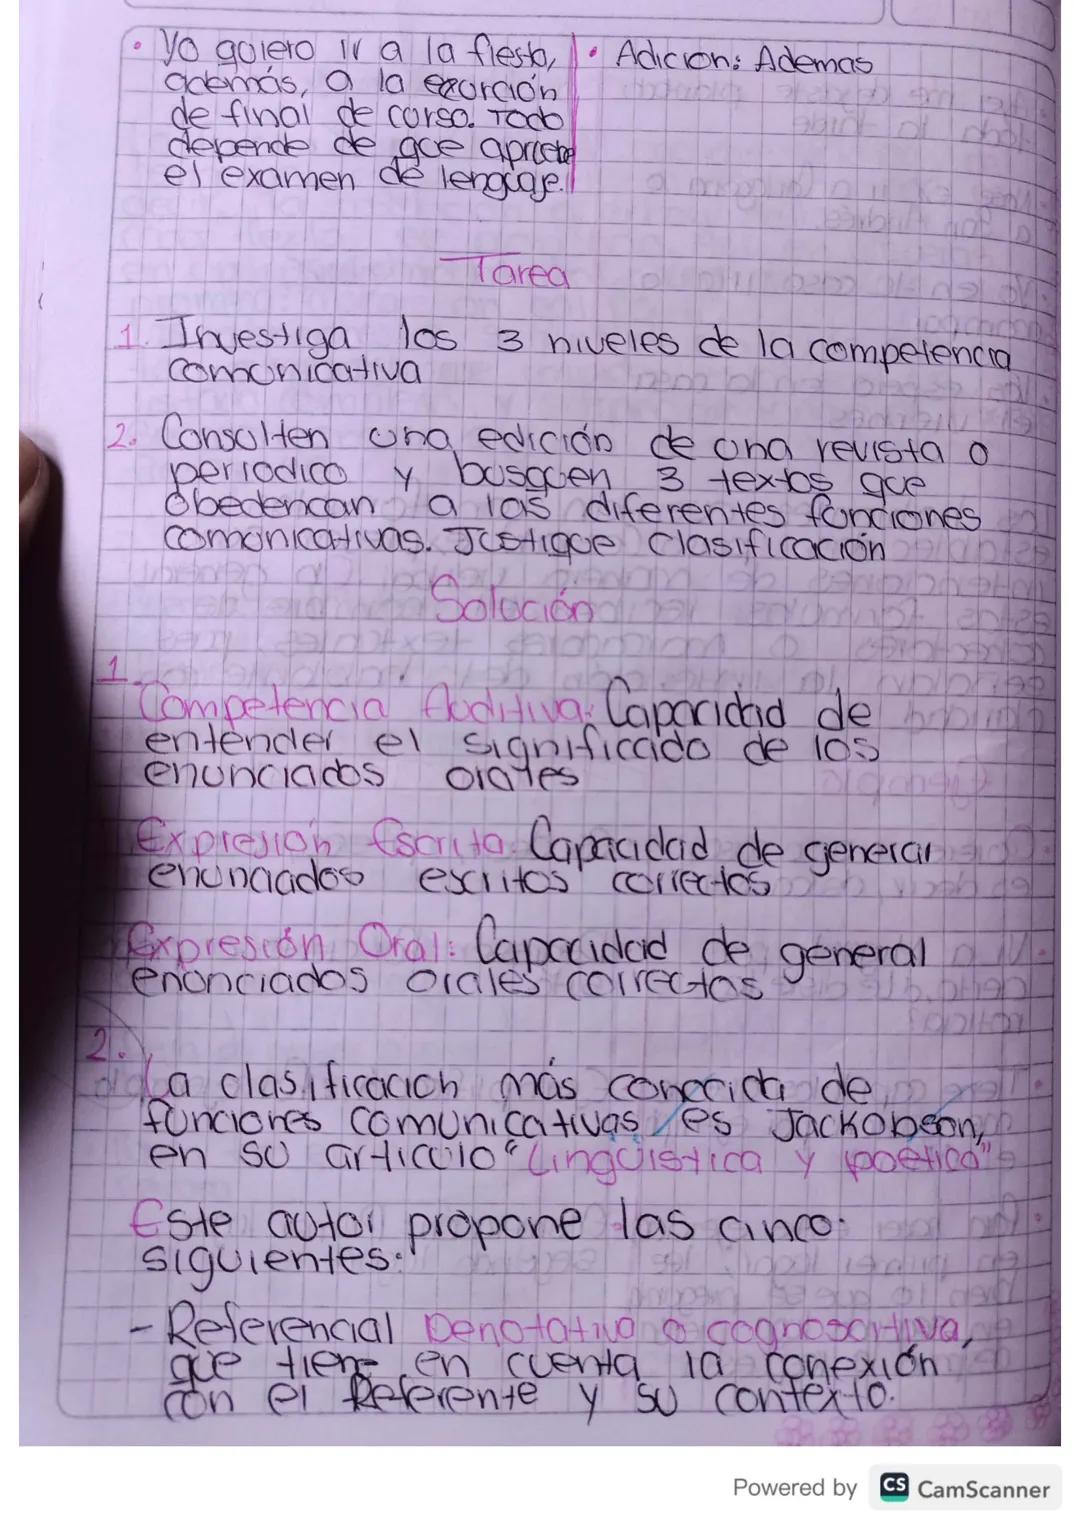 • Yo quiero ir a la fiesta,
además, a la excurción
de final de curso. Todo
depende de que apruebe
el examen de lenguaje.
• Adicion: Ademas
Tarea
1. Investiga los 3 niveles de la competencia
comunicativa
2. Consulten una edición de una revista o
periodico y busquen 3 textos que
obedencan a las diferentes funciones
comunicativas. Justique clasificación
Solución
1.
Competencia Auditiva: Capacidad de
entender el significado de los
enunciados orales
Expresión Escrita: Capacidad de generar
enunciados escritos correctos
Expresión Oral: Capacidad de general
enunciados orales correctos
2.
La clasificación más conocida de
funciones comunicativas es Jackobson,
en su articulo "Lingüistica y poetica"
Este autor propone las cinco:
siguientes:
- Referencial Denotativo o cognoscitiva,
que tiene en cuenta la conexión
con el Referente y su contexto.
Powered by CS CamScanner